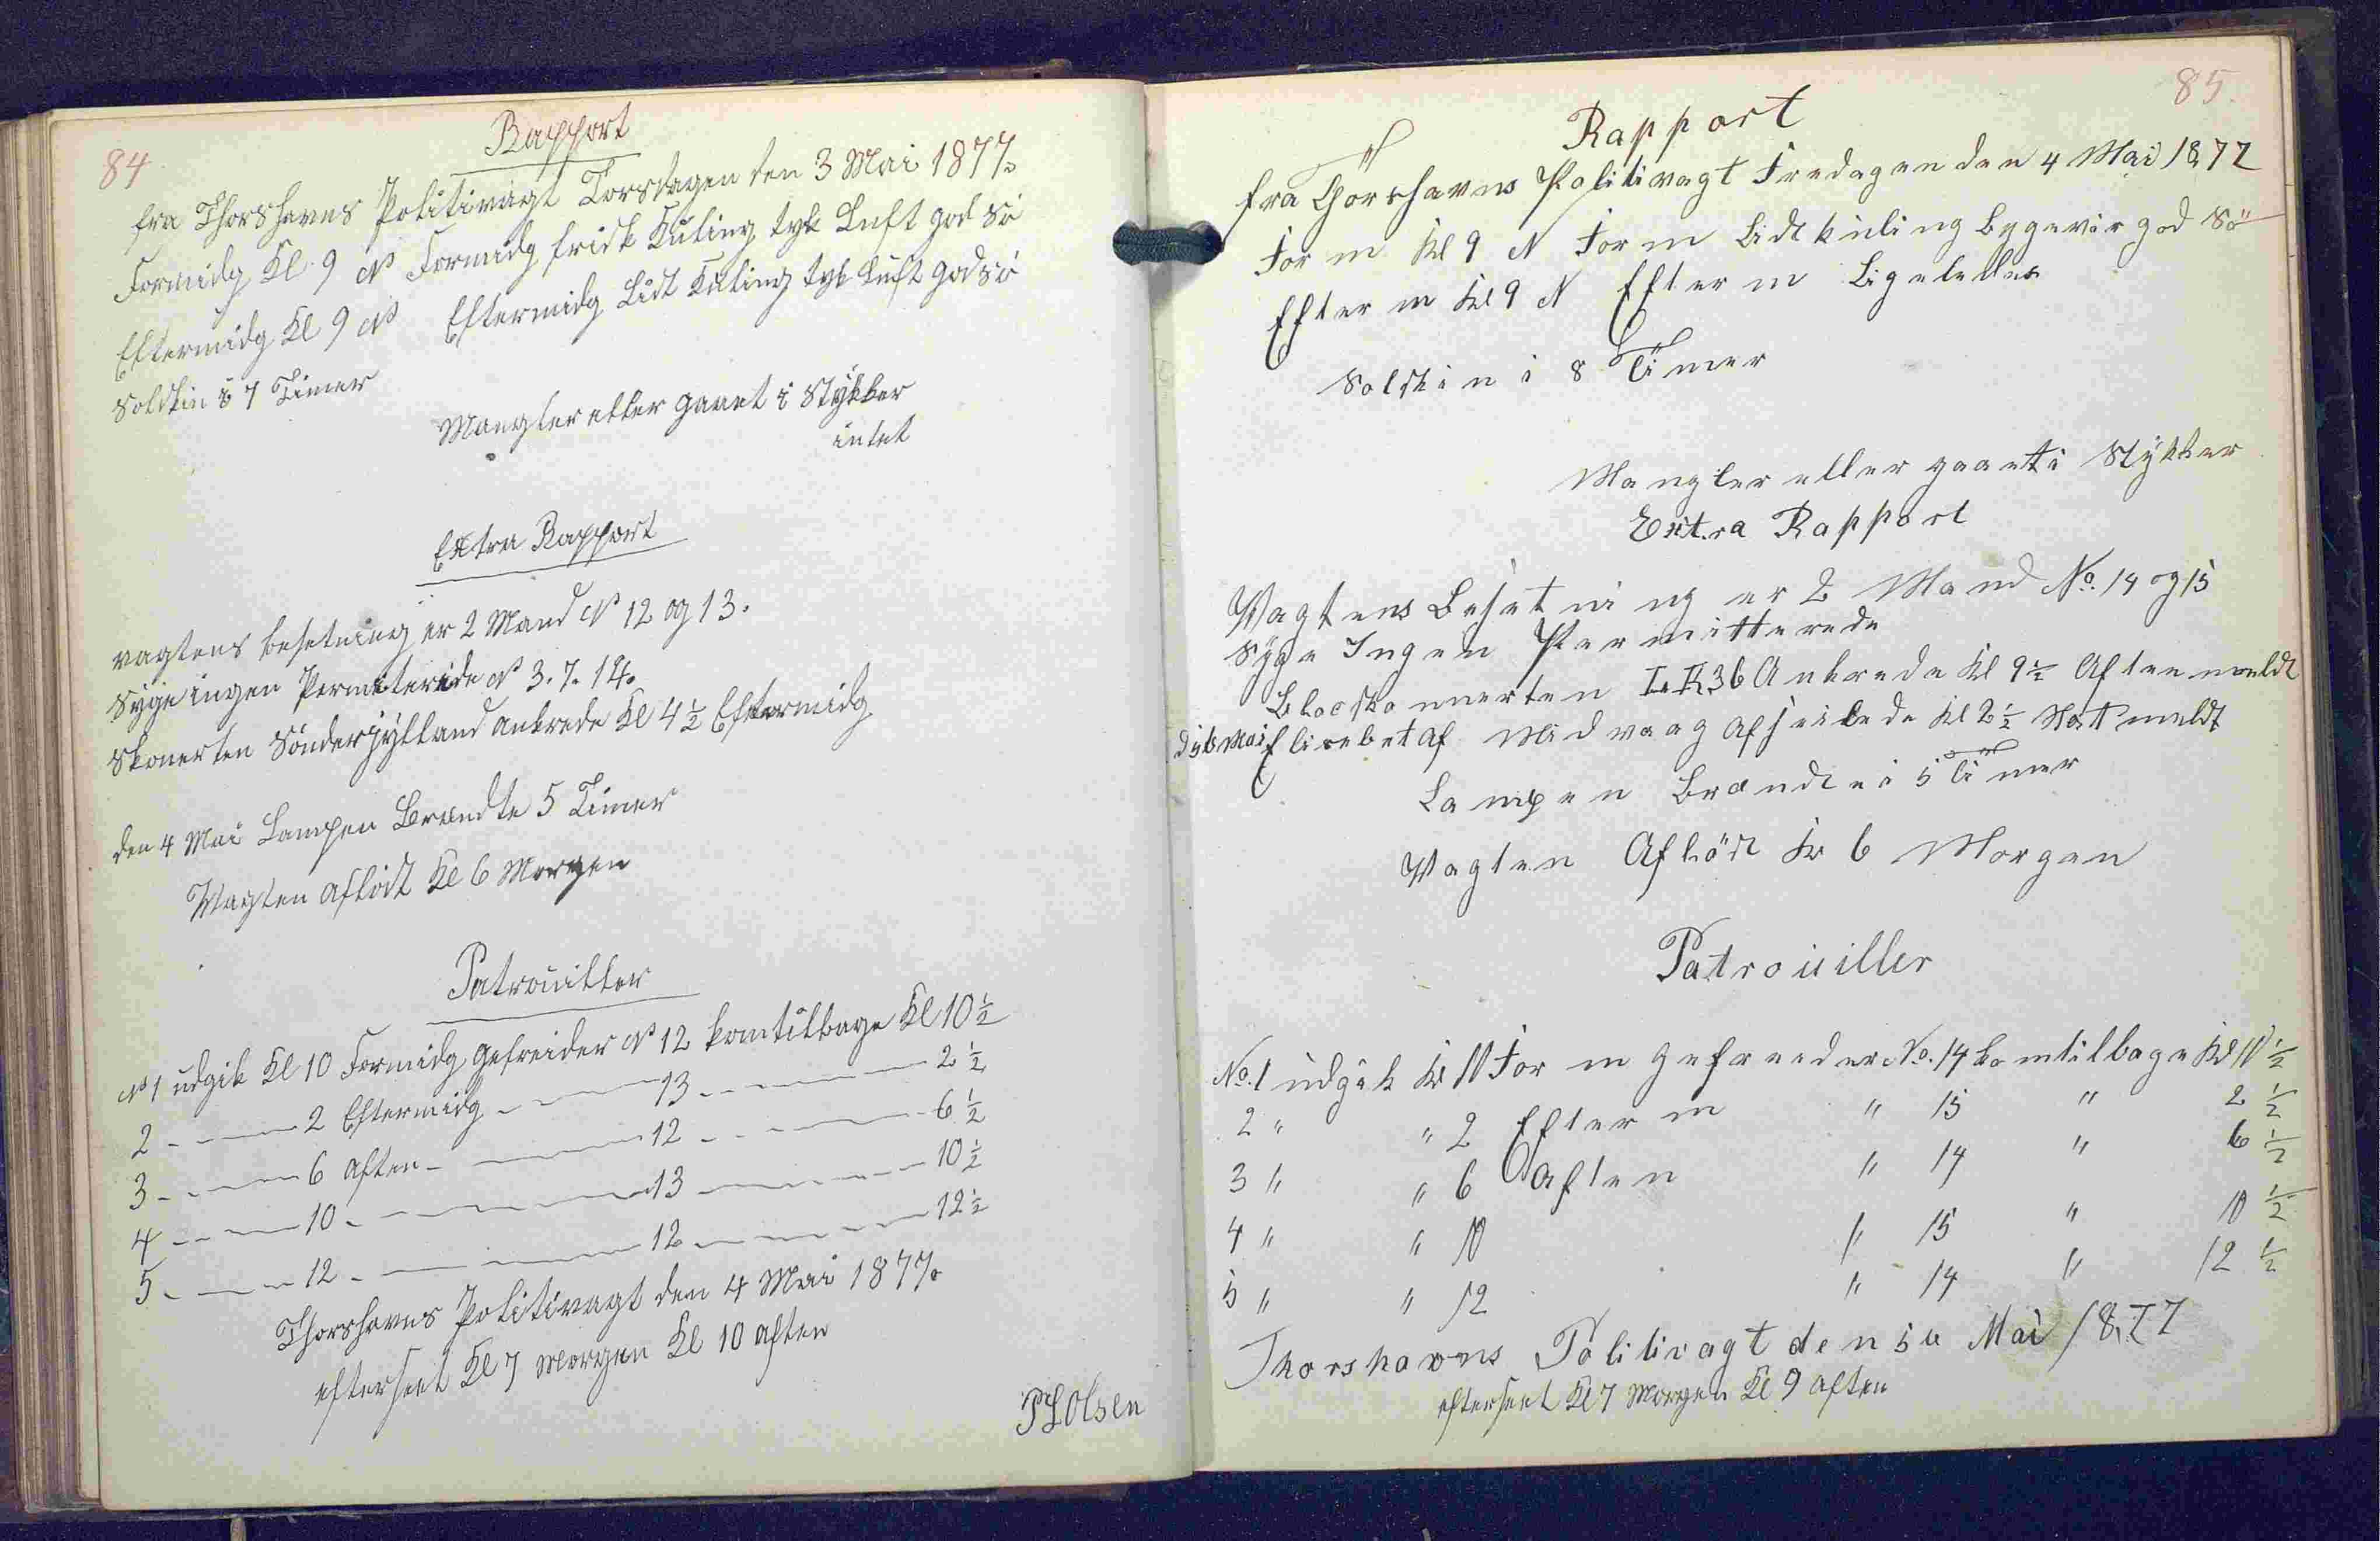 84
Rapport
fra Thorshavns Politivagt Torsdagen den 3 Mai 1877.
Formidg Kl 9 N Formidg frisk Kuling tyk Luft god Sö
Eftermidg Kl 9 N Eftermidg Lidt Kuling tyk Luft god Sö
Solskin i 7 Timer
Mangler eller gaaet i Stykker
intet
Extra Rapport
vagtens besetning er 2 Mand N 12 og 13.
Syge ingen Permiterede N 3. 7. 14.
Skonerten Sönderjylland ankrede Kl 4 1/2 Eftermidg
den 4 Mai Lampen Brændte 5 Timer
Vagten aflöst Kl 6 Morgen
Patrouiller
N 1 udgik Kl 10 Formidg Gefreider N 12 kom tilbage Kl 10 1/2
2 - - — 2 Eftermidg - — 13 - - — 2 1/2
3 - - — 6 Aften - — 12 - - — 6 1/2
4 - - — 10 - — 13 — - - 10 1/2
5 - — - 12 - — 12 — - — 12 1/2
Thorshavns Politivagt den 4 Mai 1877.
efterseet Kl 7 Morgen Kl 10 Aften
Olsen
85.
Rapport
fra Thorshavns Politivagt Fredagen den 4 Mai 1877
Form Kl 9 N Form Lidt kuling bygevir god Sö
Efterm Kl 9 N Efterm Ligeledes
Solskin i 8 Timer
Mangler eller gaaet i Stykker
Extra Rapport
Vagtens Besetning er 2 Mand No. 14 og 15
Syge Ingen Permitterede
LK 36 Ankrede Kl 9 1/2 Aften meldt
D 5 Mai Elisebet af Midvaag afseilede Kl 2 1/2 Nat meldt
Lampen Brændte i 5 Timer
Vagten Aflöst Kl 6 Morgen
Patrouiller
No. 1 udgik Kl 10 Form gefreeder No. 14 kom tilbage Kl 10 1/2
2 " " 2 Efterm " 15 " 2 1/2
3 " " 6 Aften " 14 " 6 1/2
4 " " 10 " 15 " 10 1/2
5 " " 12 " 14 " 12 1/2
Thorshavns Politivagt den 5 Mai 1877
efterseet Kl 7 Morgen Kl 9 Aften